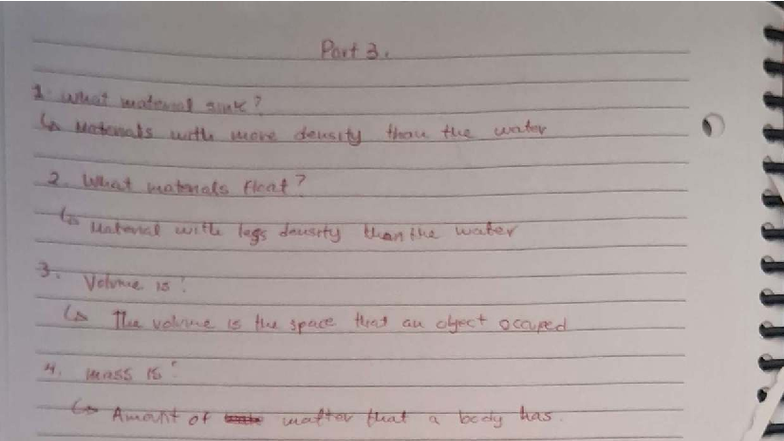 Part 3.
1. What material sink?
↳ Materials with more density than the water
2. What materials float?
↳ Material with less density than the water
3. Volume is:
↳ The volume is the space that an object occuped
4. Mass is:
↳ Amount of matter that a body has.